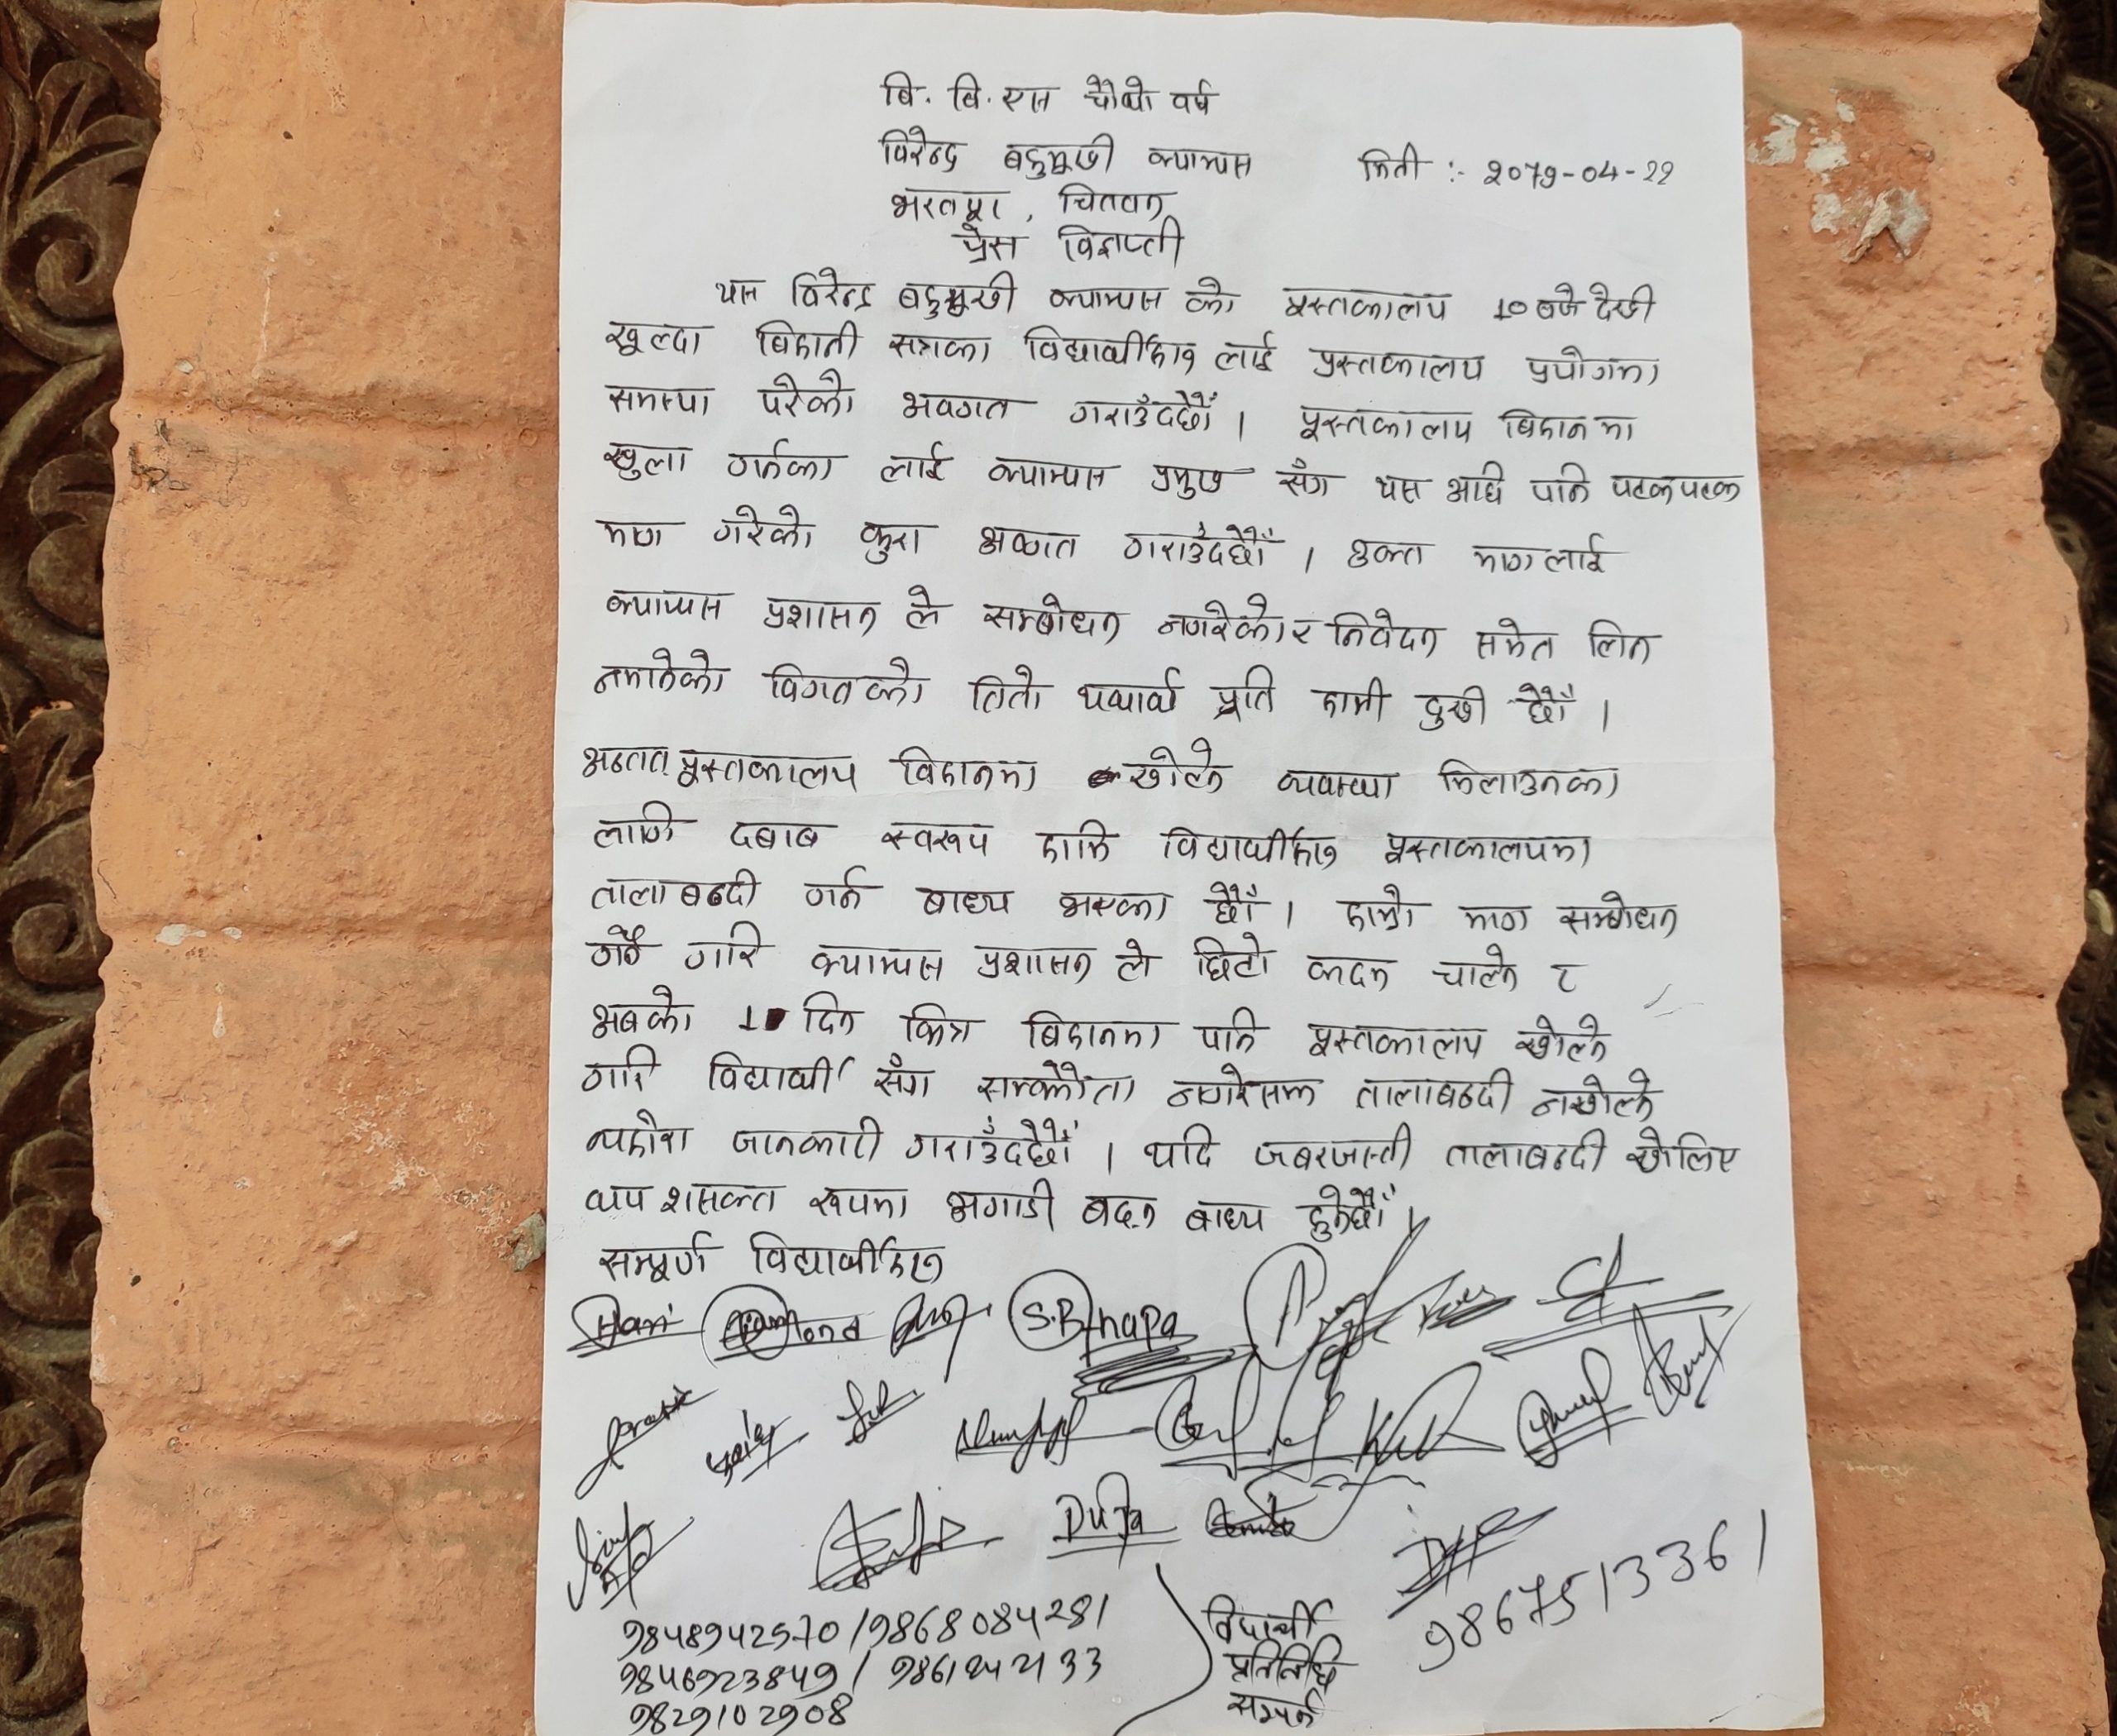 बि. बि. एस चौथो वर्ष
विरेन्द्र बहुमूखी क्याम्पस
मिती :- 2079-04-22
भरतपूर, चितवन
प्रेस विज्ञप्ती
यस विरेन्द्र बहुमूखी क्याम्पस को पूस्तकालय 10 बजे देखी
खूल्दा बिहानी सत्रका विद्यार्थीहरु लाई पुस्तकालय प्रयोगमा
समस्या परेको अवगत गराउँदछौं । पूस्तकालय बिहानमा
खुला गर्नका लाई क्याम्पस प्रमुख सँग यस अघि पनि पटकपटक
माग गरेको कुरा अवगत गराउँदछौं । उक्त मागलाई
क्याम्पस प्रशासन ले सम्बोधन नगरेको र निवेदन समेत लिन
नमानेको विगतको तितो यथार्थ प्रति हामी दुखी छौं ।
अन्तत पूस्तकालय विहानमा खोल्ने व्यवस्था मिलाउनका
लागि दबाब स्वरूप हामि विद्यार्थीहरु पूस्तकालयमा
तालाबन्दी गर्न बाध्य भएका छौं । हाम्रो माग सम्बोधन
गर्ने गरि क्याम्पस प्रशासन ले छिटो कदम चाल्ने र
अबको दिन भित्र बिहानमा पनि पूस्तकालय खोल्ने
गरि विद्यार्थी सँग सम्झौता नगरेसम्म तालाबन्दी नखोल्ने
व्यहोरा जानकारी गराउँदछौं । यदि जबरजास्ती तालाबन्दी खोलिए
थप शसक्त रूपमा अगाडी बढ्न बाध्य हुनेछौं ।
सम्पूर्ण विद्यार्थीहरु
Hari S.B Thapa
Duja
9848942570 / 9868084281
विद्यार्थी
9867513361
प्रतिनिधि
9829102908
सम्पर्क